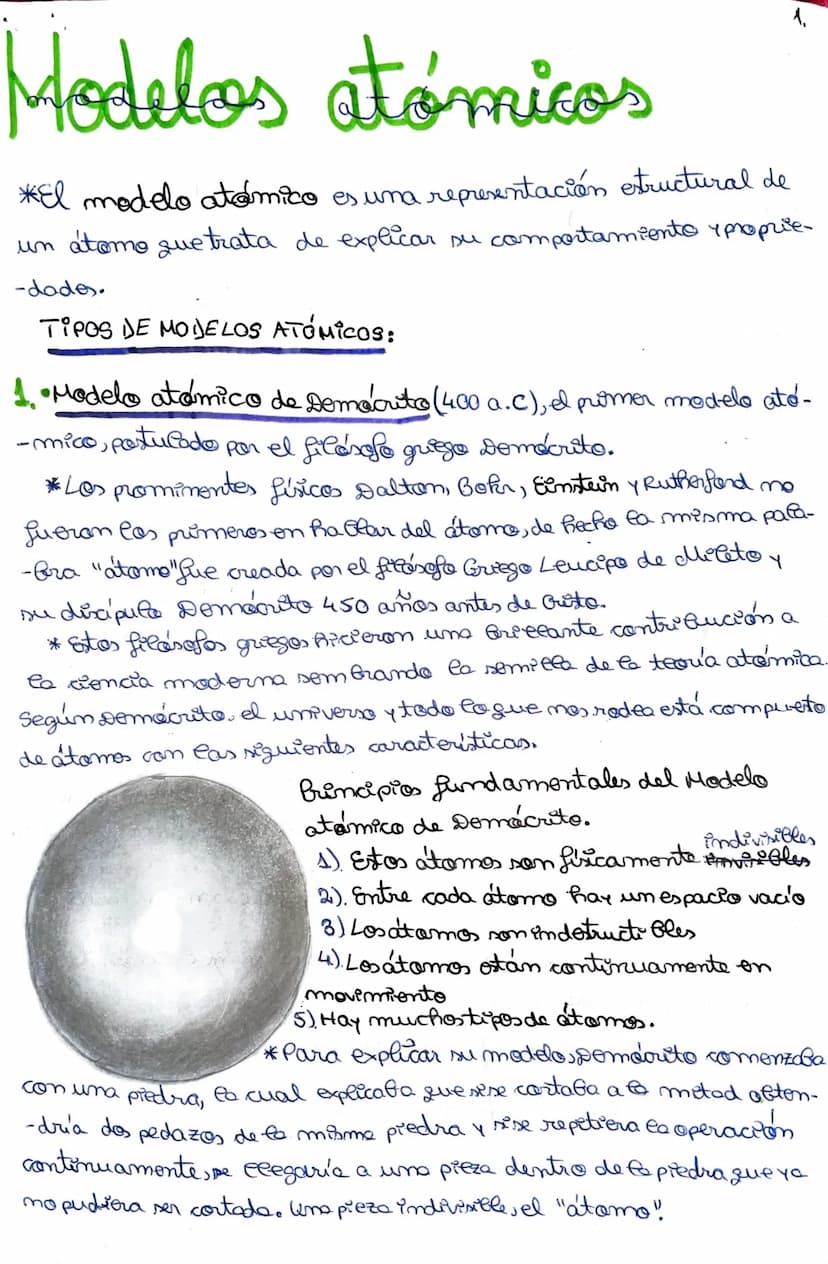 1.
Modelos atómicos
*El modelo atómico es una representación estructural de
un átomo que trata de explicar su comportamiento y propie-
-dades.
TIPOS DE MODELOS ATÓMICOS:
1. • Modelo atómico de Demócrito (400 a.C), el primer modelo ató-
-mico, postulado por el filósofo griego Demócrito.
*Los prominentes físicos Dalton, Bohr, Einstein y Rutherford no
fueron los primeros en hablar del átomo, de hecho la misma pala-
-bra "átomo" fue creada por el filósofo Griego Leucipo de Mileto y
su discípulo Demócrito 450 años antes de Cristo.
* Estos filósofos griegos hicieron una brillante contribución a
la ciencia moderna sembrando la semilla de la teoría atómica.
Según Demócrito, el universo y todo lo que nos rodea está compuesto
de átomos con las siguientes características.
Principios fundamentales del Modelo
atómico de Demócrito.
indivisibles
1). Estos átomos son físicamente
2). Entre cada átomo hay un espacio vacío
3) Los átomos son indestructibles
4). Los átomos están continuamente en
movimiento
5). Hay muchos tipos de átomos.
*Para explicar su modelo, Demócrito comenzaba
con una piedra, la cual explicaba que si se cortaba a la mitad obten-
-dría dos pedazos de la misma piedra y si se repitiera la operación
continuamente, se llegaría a una pieza dentro de la piedra que ya
no pudiera ser cortada. Una pieza indivisible, el "átomo".